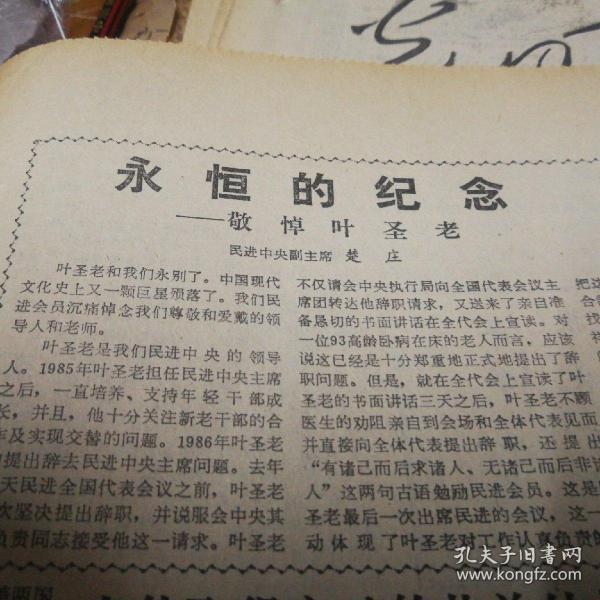 永恒的纪念
——敬悼叶圣老
民进中央副主席 楚 庄
叶圣老和我们永别了。中国现代
文化史上又一颗巨星殒落了。我们民
进会员沉痛悼念我们尊敬和爱戴的领
导人和老师。
叶圣老是我们民进中央的领导
人。1985年叶圣老担任民进中央主席
之后，一直培养、支持年轻干部成
长，并且，他十分关注新老干部的合
作及实现交替的问题。1986年叶圣老
提出辞去民进中央主席问题。去年
天民进全国代表会议之前，叶圣老
次坚决提出辞职，并说服会中央其
负责同志接受他这一请求。叶圣老
不仅请会中央执行局向全国代表会议主
席团转达他辞职请求，又送来了亲自准
备恳切的书面讲话在全代会上宣读。对
一位93高龄卧病在床的老人而言，应该
说这已经是十分郑重地正式地提出了辞
职问题。但是，就在全代会上宣读了叶
圣老的书面讲话三天之后，叶圣老不顾
医生的劝阻亲自到会场和全体代表见面
并直接向全体代表提出辞职，还提出
“有诸己而后求诸人、无诸己而后非诸
人”这两句古语勉励民进会员。这是
圣老最后一次出席民进的会议，这一
动体现了叶圣老对工作认真负责的
把这
孔夫子旧书网
www.kongfz.com